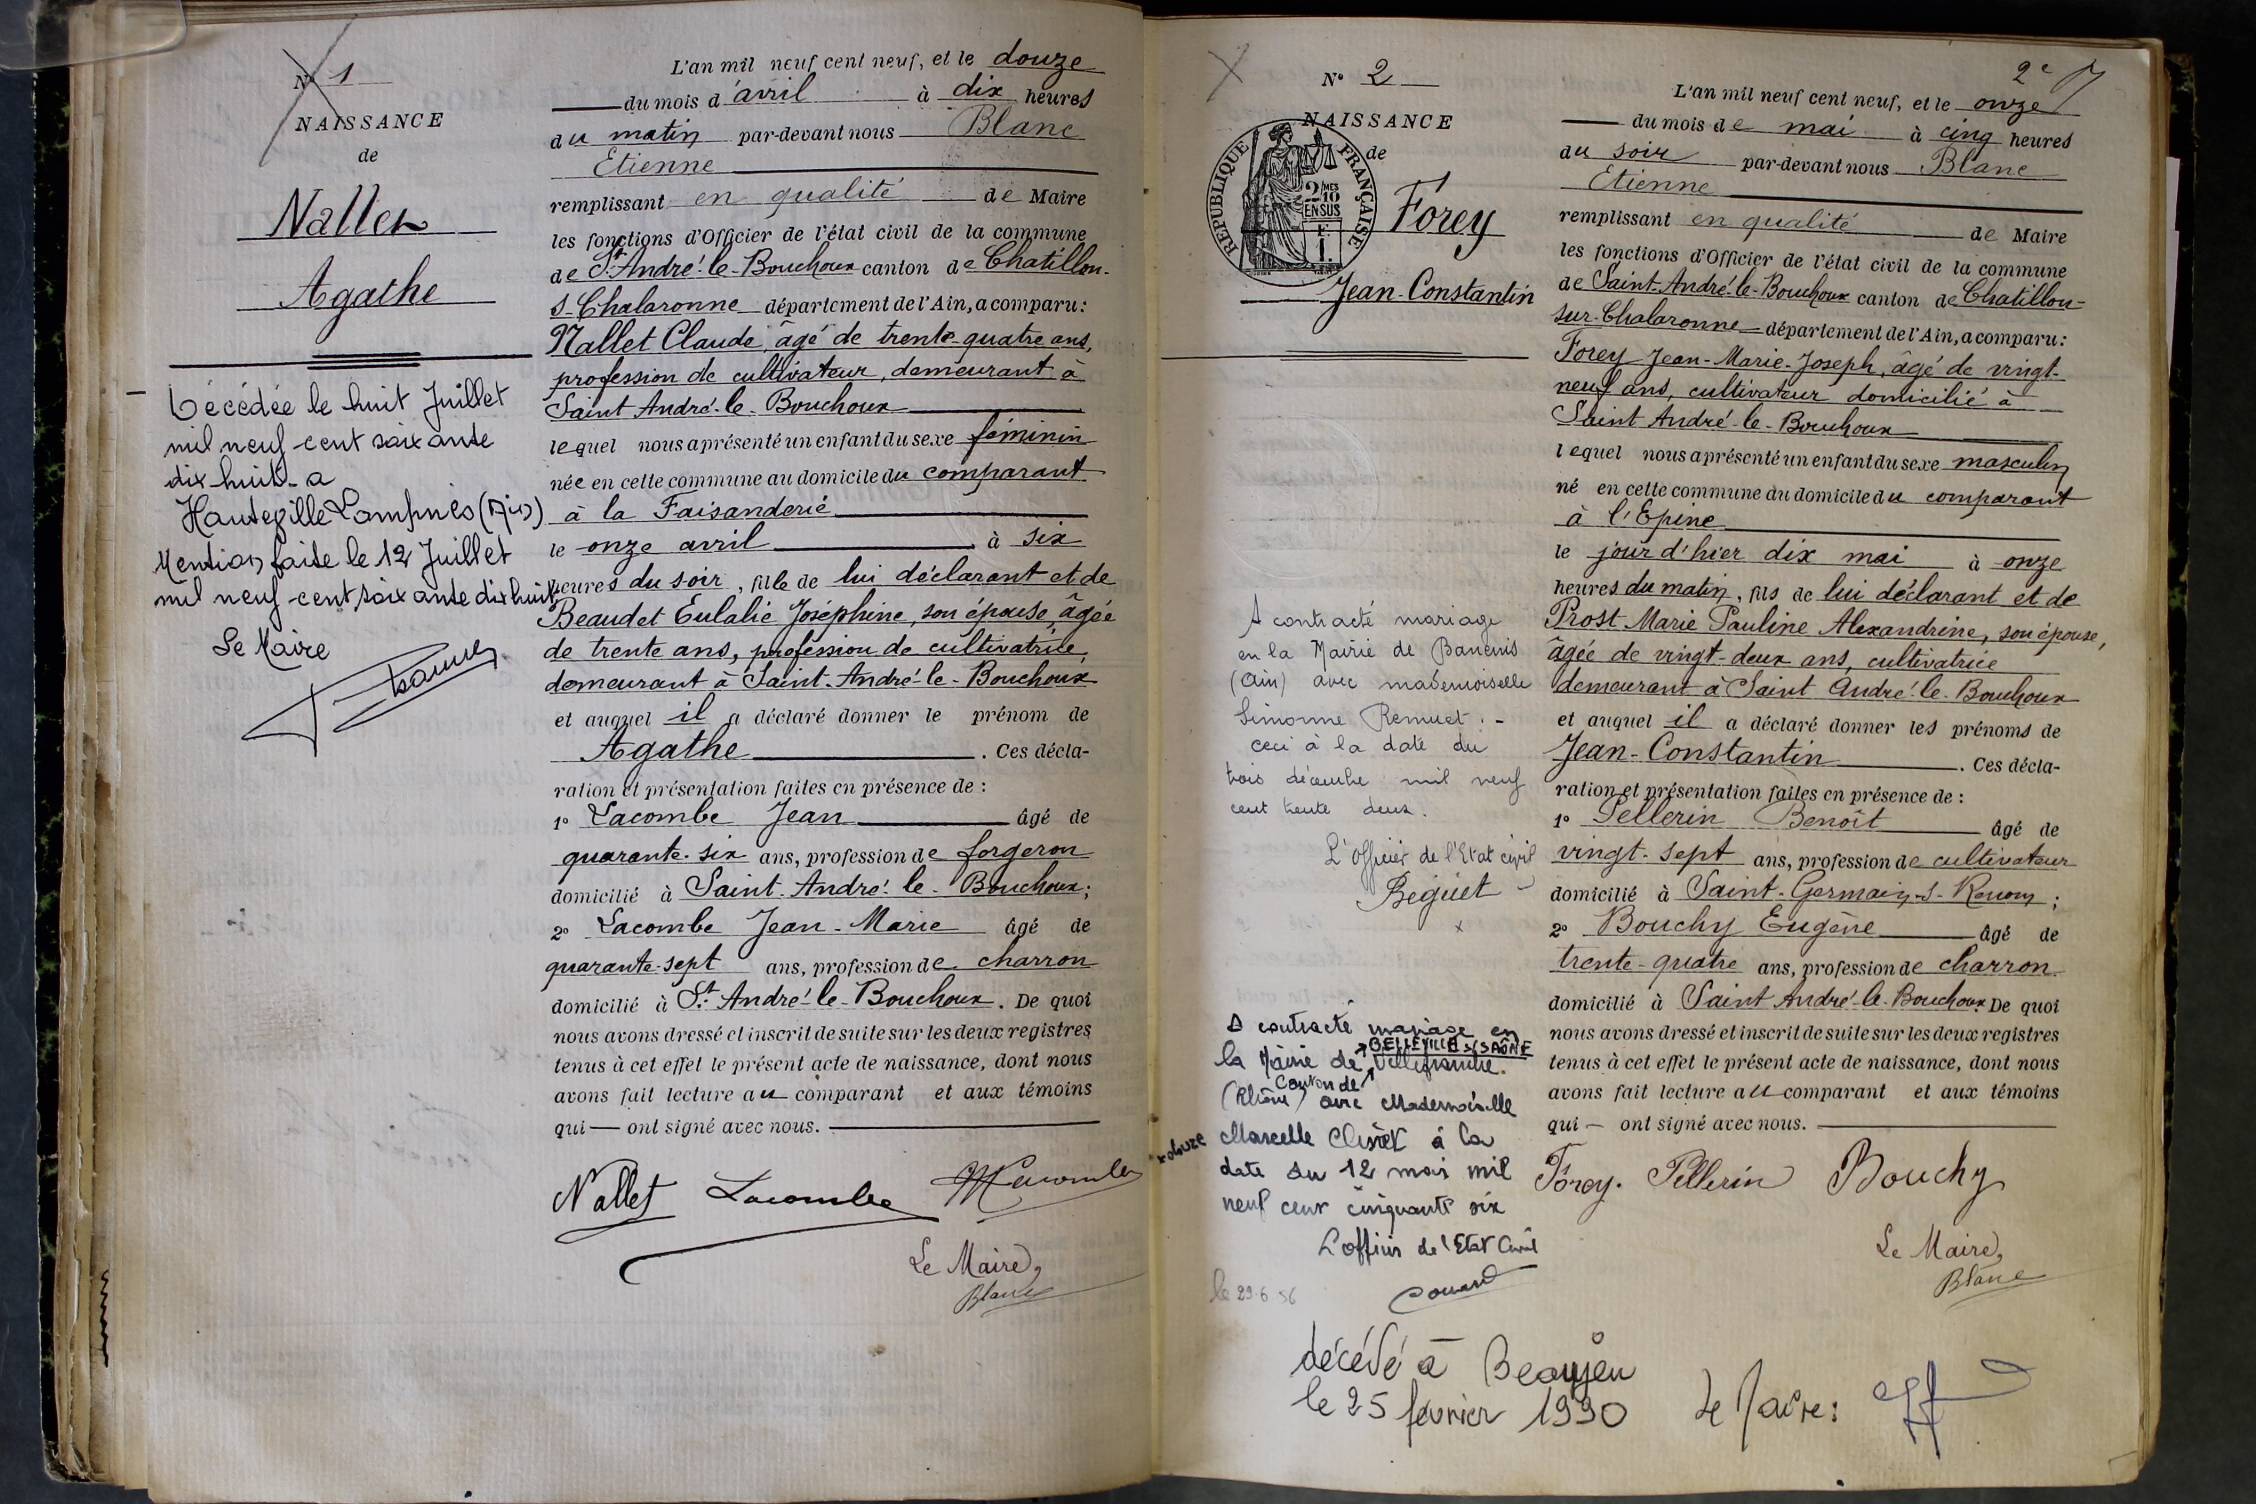 N° 1
NAISSANCE
de
Nallet
Agathe
Décédée le huit Juillet
mil neuf cent soixante
dix huit a
Hauteville Lompnes (Ain)
Mention faite le 12 Juillet
mil neuf cent soixante dix huit
Le Maire
L'an mil neuf cent neuf, et le douze
du mois d'avril à dix heures
du matin par-devant nous Blanc
Etienne
remplissant en qualité de Maire
les fonctions d'Officier de l'état civil de la commune
de St André-le-Bouchoux canton de Chatillon-
s-Chalaronne département de l'Ain, a comparu:
Nallet Claude, âgé de trente-quatre ans,
profession de cultivateur, demeurant à
Saint André-le-Bouchoux
lequel nous a présenté un enfant du sexe féminin
née en cette commune au domicile du comparant
à la Faisanderie
le onze avril à six
heures du soir, fille de lui déclarant et de
Beaudet Eulalie Joséphine, son épouse, âgée
de trente ans, profession de cultivatrice,
demeurant à Saint-André-le-Bouchoux
et auquel il a déclaré donner le prénom de
Agathe. Ces décla-
ration et présentation faites en présence de :
1° Lacombe Jean âgé de
quarante-six ans, profession de forgeron
domicilié à Saint-André-le-Bouchoux;
2° Lacombe Jean-Marie âgé de
quarante-sept ans, profession de charron
domicilié à St André-le-Bouchoux. De quoi
nous avons dressé et inscrit de suite sur les deux registres
tenus à cet effet le présent acte de naissance, dont nous
avons fait lecture au comparant et aux témoins
qui — ont signé avec nous.
Nallet Lacombe Lacombe
Le Maire,
Blanc
2e
N° 2
NAISSANCE
de
RÉPUBLIQUE FRANÇAISE
2/MES
10
EN SUS
Forey
Jean-Constantin
A contracté mariage
en la Mairie de Baneins
(Ain) avec mademoiselle
Simonne Remuet.-
ceci à la date du
trois décembre mil neuf
cent trente deux.
L'Officier de l'Etat civil
Béguet
A contracté mariage en
BELLEVILLE s/SAÔNE
la Mairie de Villefranche.
Canton de
(Rhône) avec Mademoiselle
Marcelle à la
x douze
date du 12 mai mil
neuf cent cinquante six
L'officier de l'Etat Civil
le 29-6 56
L'an mil neuf cent neuf, et le onze
du mois de mai à cinq heures
du soir par-devant nous Blanc
Etienne
remplissant en qualité de Maire
les fonctions d'Officier de l'état civil de la commune
de Saint-André-le-Bouchoux canton de Chatillon-
sur-Chalaronne département de l'Ain, a comparu:
Forey Jean-Marie-Joseph, âgé de vingt-
neuf ans, cultivateur domicilié à
Saint André-le-Bouchoux
lequel nous a présenté un enfant du sexe masculin
né en cette commune au domicile du comparant
à l'Epine
le jour d'hier dix mai à onze
heures du matin, fils de lui déclarant et de
Prost Marie Pauline Alexandrine, son épouse,
âgée de vingt-deux ans, cultivatrice
demeurant à Saint André-le-Bouchoux
et auquel il a déclaré donner les prénoms de
Jean-Constantin. Ces décla-
ration et présentation faites en présence de :
1° Pellerin Benoît âgé de
vingt-sept ans, profession de cultivateur
domicilié à Saint-Germain-s-Renom;
2° Bouchy Eugène âgé de
trente-quatre ans, profession de charron
domicilié à Saint André-le-Bouchoux. De quoi
nous avons dressé et inscrit de suite sur les deux registres
tenus à cet effet le présent acte de naissance, dont nous
avons fait lecture au comparant et aux témoins
qui — ont signé avec nous.
Forey. Pellerin Bouchy
Le Maire,
Blanc
décédé à Beaujeu
le 25 février 1990 Le Maire: